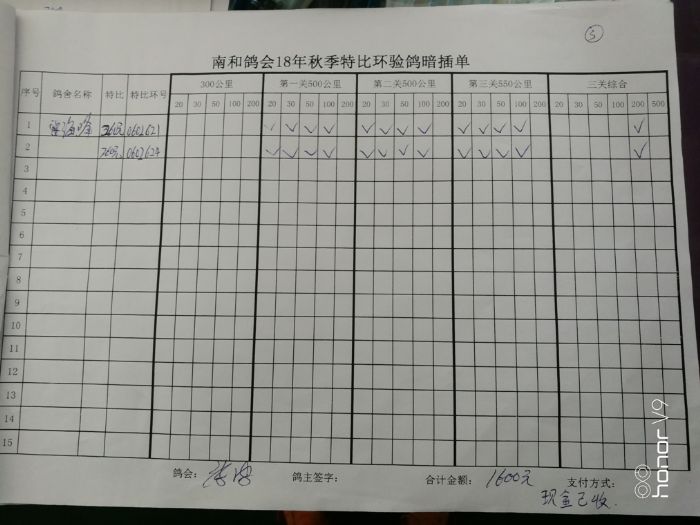 3
南和鸽会18年秋季特比环验鸽暗插单
序号 鸽舍名称 特比 特比环号 300公里 第一关500公里 第二关500公里 第三关550公里 三关综合
20 30 50 100 200 20 30 50 100 200 20 30 50 100 200 20 30 50 100 200 20 30 50 100 200 500
1 海峰 360元 0602621 ✓ ✓ ✓ ✓ ✓ ✓ ✓ ✓ ✓ ✓ ✓ ✓ ✓
2 760元 ✓ ✓ ✓ ✓ ✓ ✓ ✓ ✓ ✓ ✓ ✓ ✓ ✓
3
4
5
6
7
8
9
10
11
12
13
14
15
鸽会： 鸽主签字： 合计金额： 1600元 支付方式：
现金已收.
honor V9